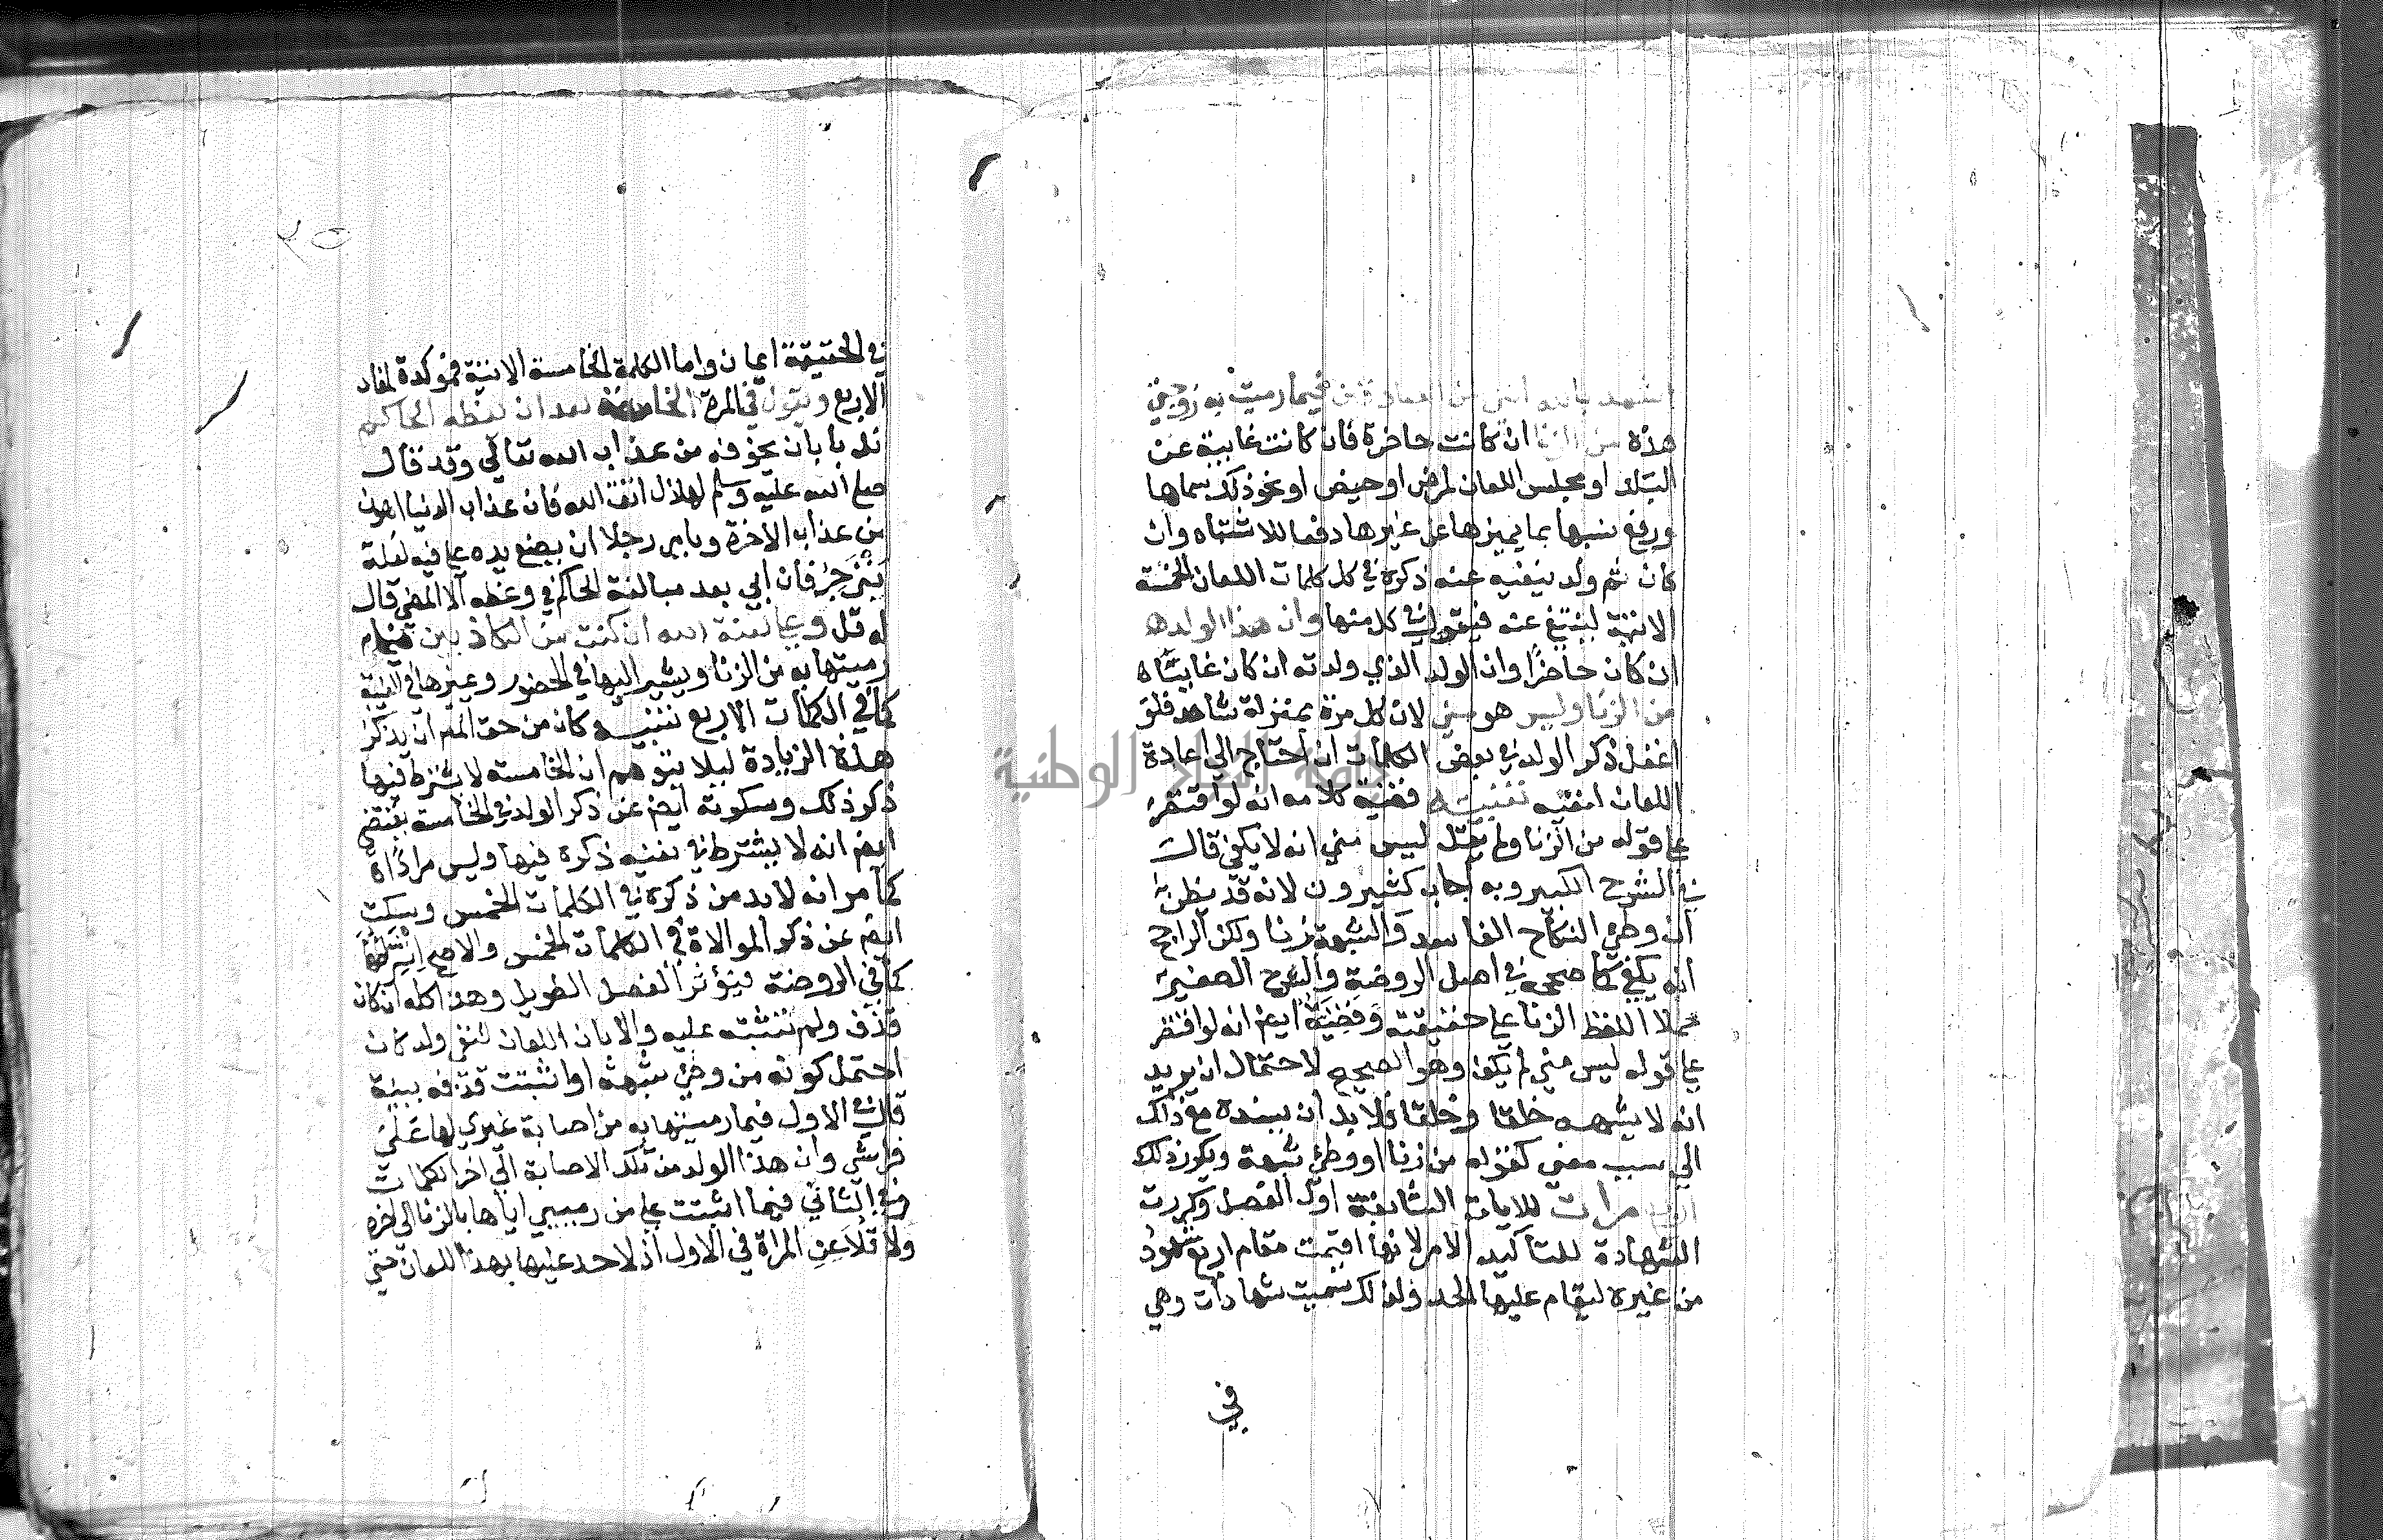 اشهد بالله انني من الصادقين فيما رميت به زوجتي
هذه من الزنا ان كانت حاضرة فان كانت غايبة عن
البلد او مجلس اللعان لمرض او حيض او نحو ذلك سماها
ورفع نسبها بما يميزها عن غيرها دفعا للاشتباه وان
كان ثم ولد ينفيه عنه ذكره في كل كلمات اللعان الخمسة
الاتية لينتفي عنه فيقول في كل منها وان هذا الولد
ان كان حاضرًا وان الولد الذي ولدته ان كان غايبًا
من الزنا وليس هو مني لان كل مرة بمنزلة شاهد فلو
اغفل ذكر الولد في بعض الكلمات احتاج الي اعادة
اللعان لنفيه تنبيه قضية كلامه انه لو اقتصر
علي قوله من الزنا ولم يقل ليس مني انه لا يكفي قال
في الشرح الكبير وبه اجاب كثيرون لانه قد يظن
ان وطئ النكاح الفاسد والشبهة زنا ولكن الراجح
انه يكفي كما صححه في اصل الروضة والشرح الصغير
حملا للفظ الزنا علي حقيقته وقضيته ايضا انه لو اقتصر
علي قوله ليس مني لم يكف وهو الصحيح لاحتمال ان يريد
انه لا يشبهه خلقا وخلقا فلا بد ان يسنده مع ذلك
الي سبب معين كقوله من زنا او وطئ شبهة ويكرر ذلك
اربع مرات للايات السابقة اول الفصل وكررت
الشهادة للتاكيد الامر لانها اقيمت مقام اربع شهود
من غيره ليقام عليها الحد ولذلك سميت شهادات وهي
في
في الحقيقة ايمان واما الكلمة الخامسة الاتية فموكدة لمفاد
الاربع ويقول في المرة الخامسة بعد ان يعظه الحاكم
ندبا بان يخوفه من عذاب الله تعالي وقد قال
صلي الله عليه وسلم لهلال اتق الله فان عذاب الدنيا اهون
من عذاب الاخرة ويامر رجلا ان يضع يده علي فيه لعله
ينزجر فان ابي بعد مبالغة الحاكم في وعظه الا المضي قال
له قل وعلي لعنة الله ان كنت من الكاذبين فيما
رميتها به من الزنا ويشير اليها في الحضور وغيرها في الغيبة
كما في الكلمات الاربع تنبيه وكان من حق المص ان يذكر
هذه الزيادة ليلا يتوهم ان الخامسة لا يشترط فيها
ذكر ذلك وسكوته ايضا عن ذكر الولد في الخامسة يقتضي
ايضا انه لا يشترط في نفيه ذكره فيها وليس مرادًا
كما مر انه لا بد من ذكره في الكلمات الخمس وسكت
ايضا عن ذكر الموالاة في الكلمات الخمس والاصح اشتراطها
كما في الروضة فيؤثر الفصل الطويل وهذا كله ان كان
قذف ولم تثبته عليه والا بان اللعان لنفي ولد كان
احتمل كونه من وطئ شبهة او اثبتت قذفه ببينة
قال في الاول فيما رميتها به من اصابة غيري لها علي
فراشي وان هذا الولد من تلك الاصابة الي اخر الكلمات
وفي الثاني فيما اثبتت علي من رميي اياها بالزنا الي اخره
ولا تلاعن المراة في الاول اذ لا حد عليها بهذا اللعان حتي